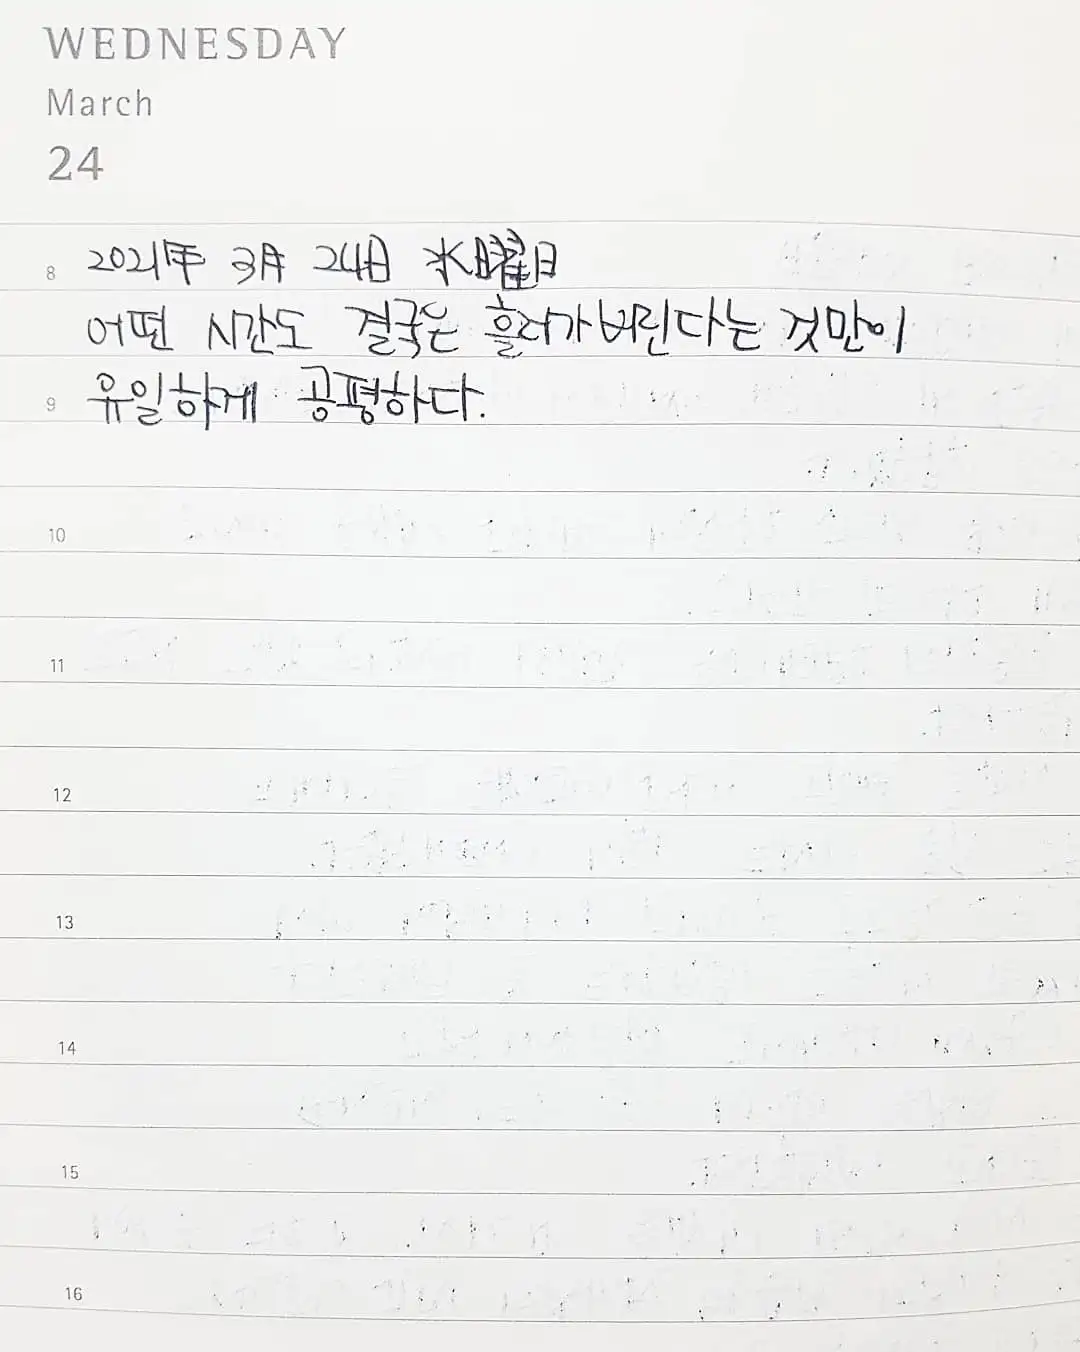 WEDNESDAY
March
24
8 2021年 3月 24日 水曜日
어떤 시간도 결국은 흘러가버린다는 것만이
9 유일하게 공평하다.
10
11
12
13
14
15
16